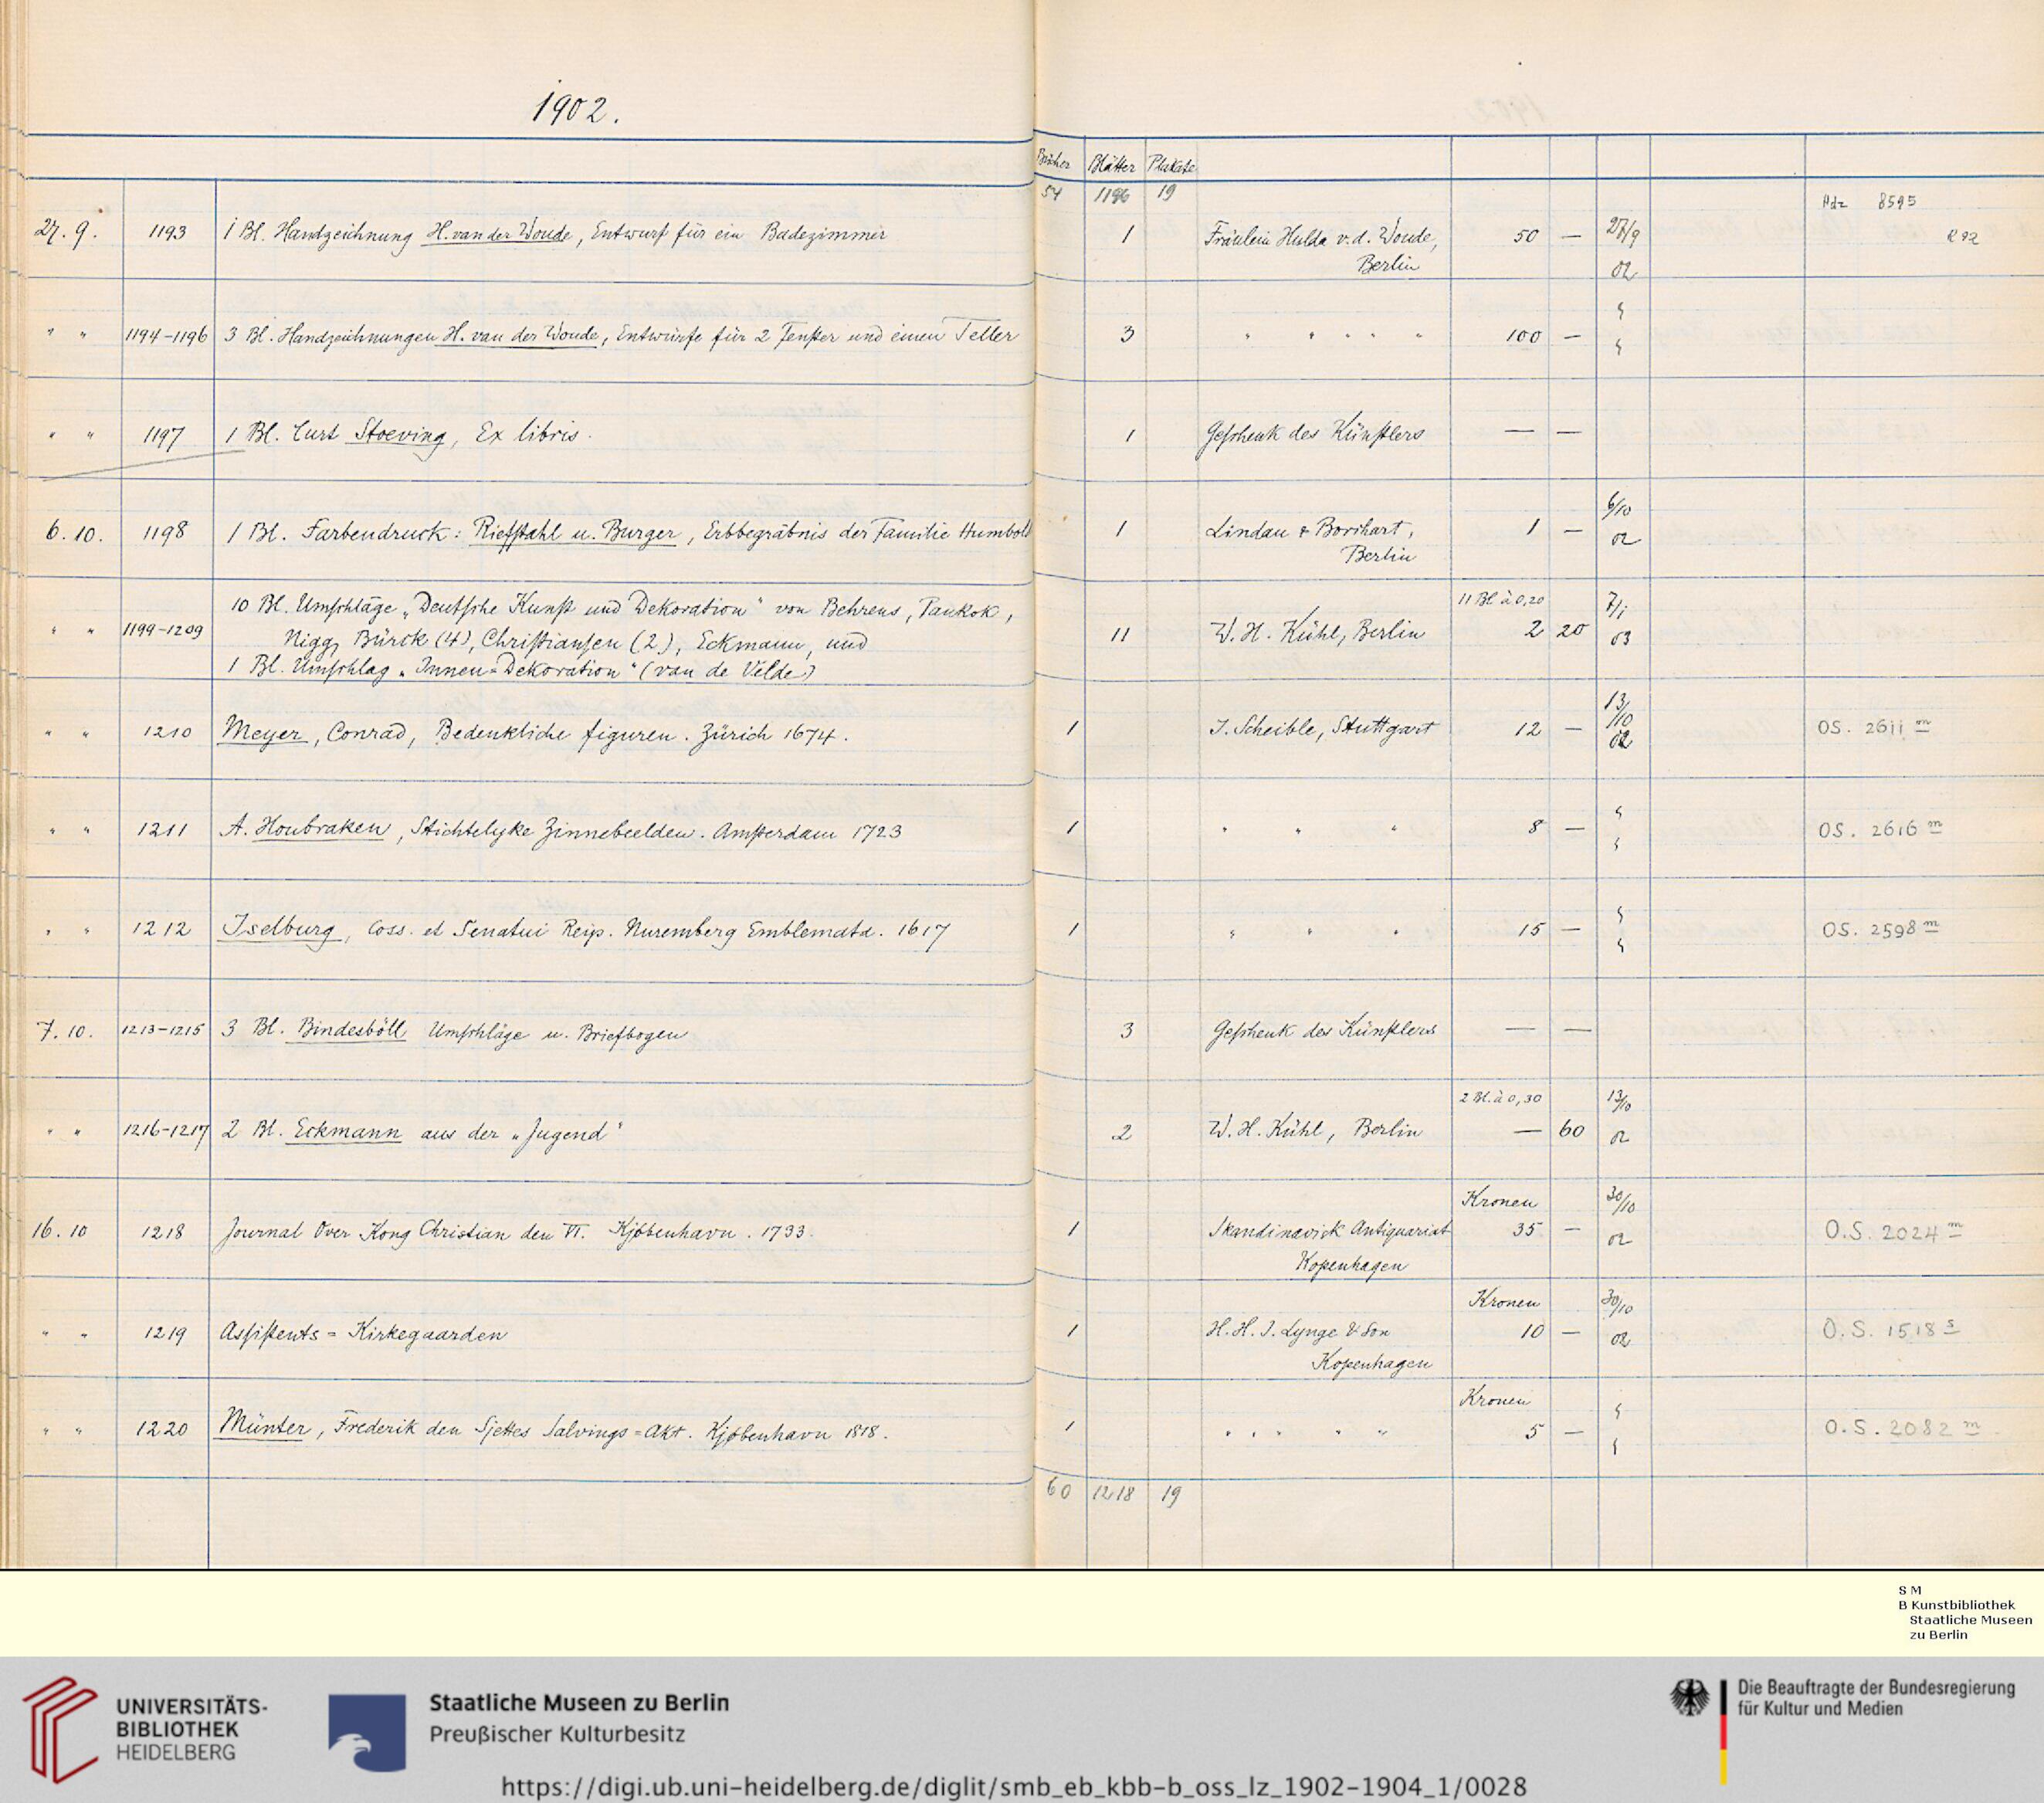 1902.
Bücher Blätter Plakate
54 1196 19
Hdz 8595
27. 9. 1193 1 Bl. Handzeichnung H. van der Woude, Entwurf für ein Badezimmer 1 Fräulein Hulda v. d. Woude, 50 — 27/9
Berlin 02
" " 1194-1196 3 Bl. Handzeichnungen H. van der Woude, Entwürfe für 2 Fenster und einen Teller 3 " " " " " 100 —
" " 1197 1 Bl. Curt Stoeving, Ex libris. 1 Geschenk des Künstlers — —
6. 10. 1198 1 Bl. Farbendruck: Riefstahl u. Burger, Erbbegräbnis der Familie Humbold 1 Lindau & Borchart, 1 — 6/10
Berlin 02
10 Bl. Umschläge „Deutsche Kunst und Dekoration" von Behrens, Pankok, 11 Bl à 0,20 7/1
" " 1199-1209 Nigg, Bürck (4), Christiansen (2), Eckmann, und 11 W. H. Kühl, Berlin 2 20 03
1 Bl. Umschlag „Innen=Dekoration" (van de Velde)
" " 1210 Meyer, Conrad, Bedenkliche figuren. Zürich 1674. 1 J. Scheible, Stuttgart 12 — 13/10 02 OS. 2611 m
" " 1211 A. Houbraken, Stichtelyke Zinnebeelden. Amsterdam 1723 1 " " " 8 — OS. 2616 m
" " 1212 Iselburg, Coss. et Senatui Reip. Nuremberg Emblemata. 1617 1 " " " 15 — OS. 2598 m
7. 10. 1213-1215 3 Bl. Bindesböll Umschläge u. Briefbogen 3 Geschenk des Künstlers — —
2 Bl. à 0,30 13/10
" " 1216-1217 2 Bl. Eckmann aus der „Jugend" 2 W. H. Kühl, Berlin — 60 02
Kronen 30/10
16. 10 1218 Journal Over Kong Christian den VI. Kjøbenhavn. 1733. 1 Skandinavisk Antiquariat 35 — 02 O.S. 2024 m
Kopenhagen
Kronen 30/10
" " 1219 Assistents=Kirkegaarden 1 H. H. J. Lynge & Son 10 — 02 O.S. 1518 s
Kopenhagen
Kronen
" " 1220 Münter, Frederik den Sjettes Salvings=Akt. Kjøbenhavn 1818. 1 " " " " " 5 — O.S. 2082 m
60 1218 19
S M
B Kunstbibliothek
Staatliche Museen
zu Berlin
UNIVERSITÄTS-
BIBLIOTHEK
HEIDELBERG
Staatliche Museen zu Berlin
Preußischer Kulturbesitz
Die Beauftragte der Bundesregierung
für Kultur und Medien
https://digi.ub.uni-heidelberg.de/diglit/smb_eb_kbb-b_oss_lz_1902-1904_1/0028